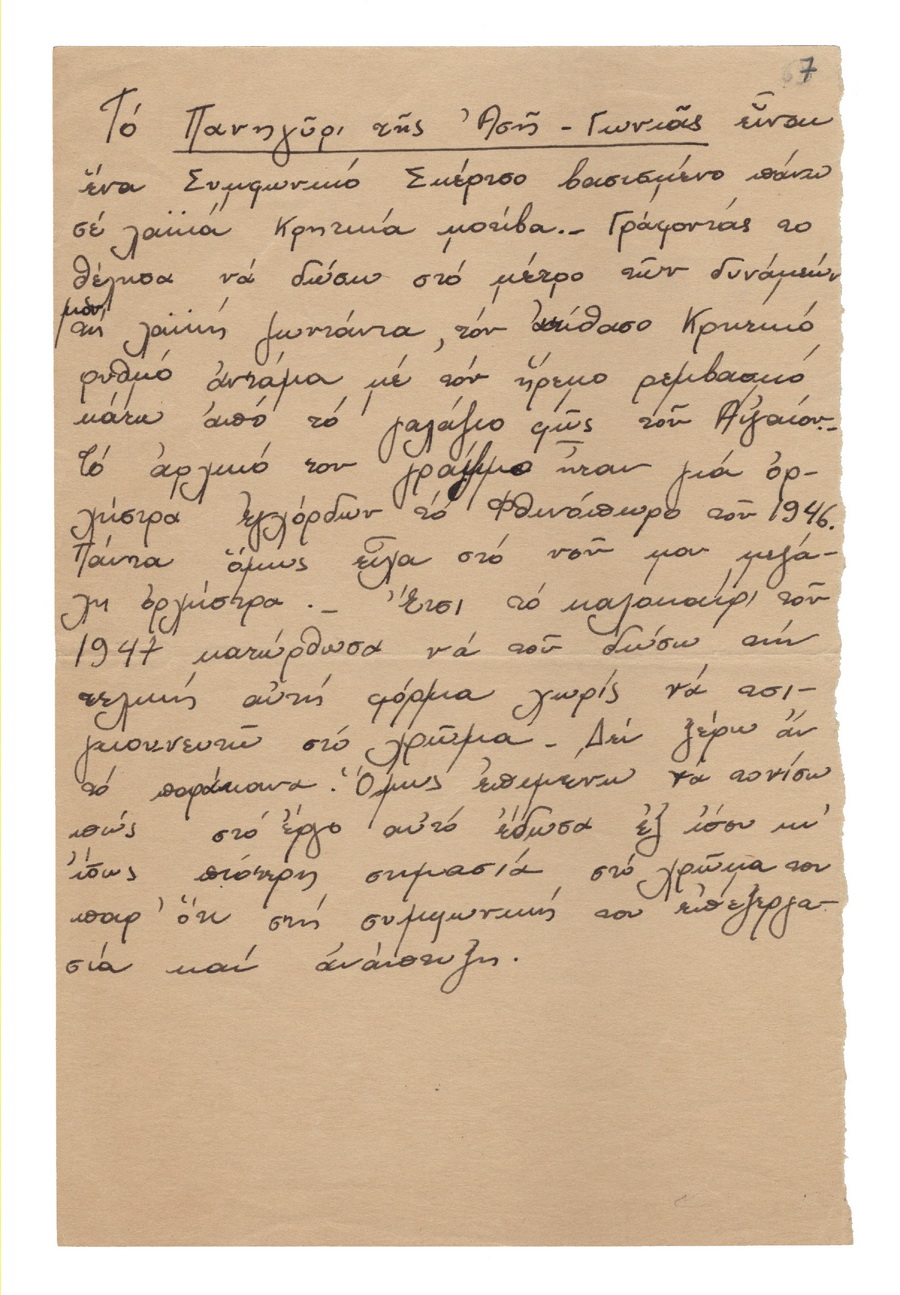 7
Τό Πανηγῦρι τῆς Ἀσῆ - Γωνιᾶς εἶναι
ἕνα Συμφωνικό Σκέρτσο βασισμένο πάνω
σέ λαϊκά Κρητικά μοτίβα._ Γράφοντάς το
θέλησα νά δώσω στό μέτρο τῶν δυνάμεών
μου,
τή λαϊκή ζωντάνια, τόν ἀτίθασο Κρητικό
ρυθμό ἀντάμα μέ τόν ἤρεμο ρεμβασμό
κάτω ἀπό τό γαλάζιο φῶς τοῦ Αἰγαίου._
Τό ἀρχικό του γράψιμο ἦταν γιά ὀρ-
χήστρα ἐγχόρδων τό Φθινόπωρο τοῦ 1946.
Πάντα ὅμως εἶχα στό νοῦ μου μεγά-
λη ὀρχήστρα ._ Ἔτσι τό καλοκαίρι τοῦ
1947 κατώρθωσα νά τοῦ δώσω τήν
τελική αὐτή φόρμα χωρίς νά τσι-
γκουνευτῶ στό χρῶμα _ Δέν ξέρω ἄν
τό παράκανα. Ὅμως ἐπιμένω νά τονίσω
πώς στό ἔργο αὐτό ἔδωσα ἐξ ἴσου κι'
ἴσως πιότερη σημασία στό χρῶμα του
παρ' ὅτι στή συμφωνική του ἐπεξεργα-
σία καί ἀνάπτυξη.